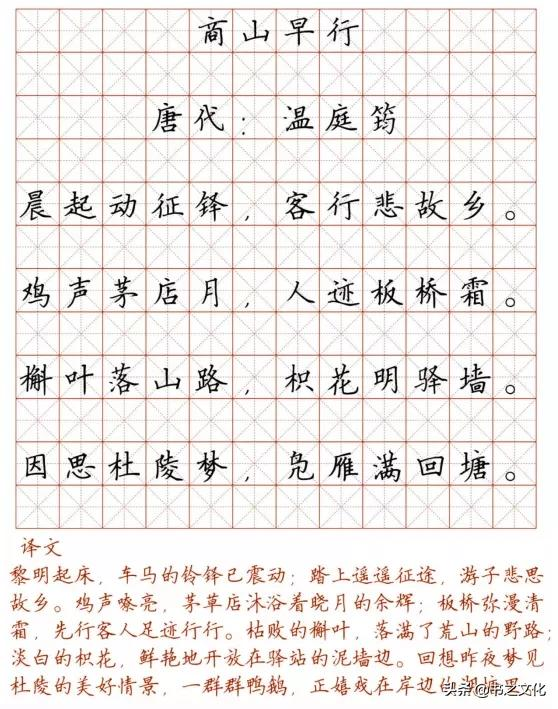 商山早行
唐代：温庭筠
晨起动征铎，客行悲故乡。
鸡声茅店月，人迹板桥霜。
槲叶落山路，枳花明驿墙。
因思杜陵梦，凫雁满回塘。
译文
黎明起床，车马的铃铎已震动；踏上遥遥征途，游子悲思
故乡。鸡声嘹亮，茅草店沐浴着晓月的余辉；板桥弥漫清
霜，先行客人足迹行行。枯败的槲叶，落满了荒山的野路；
淡白的枳花，鲜艳地开放在驿站的泥墙边。回想昨夜梦见
杜陵的美好情景，一群群鸭鹅，正嬉戏在岸边的湖塘里
头条@书之文化